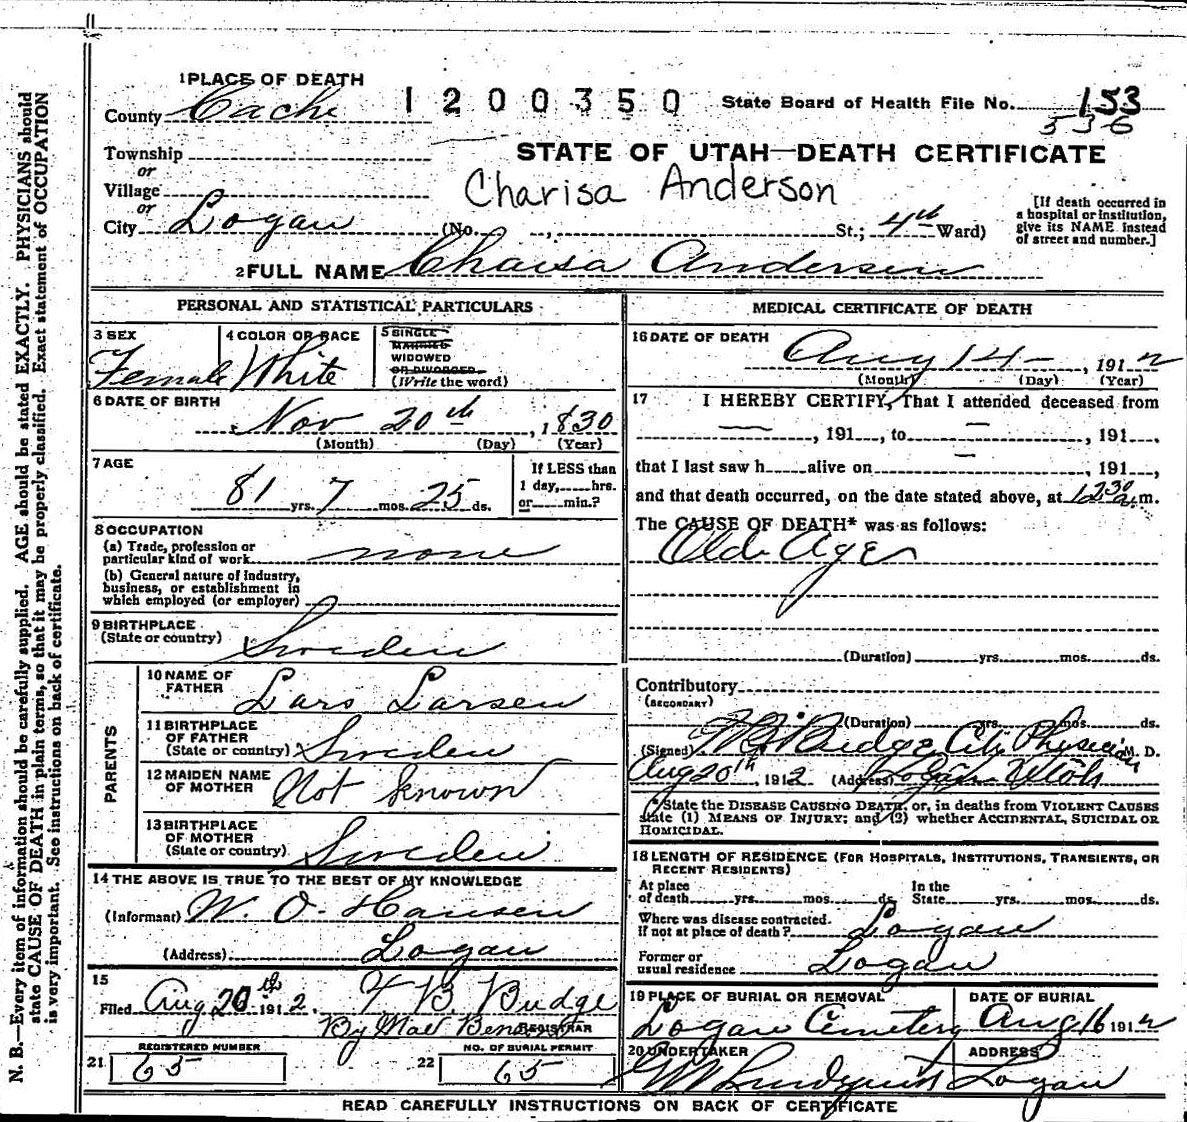 1 PLACE OF DEATH
County Cache
1200350
State Board of Health File No. 153
536
Township
or
Village
or
City Logan
STATE OF UTAH—DEATH CERTIFICATE
Charisa Anderson
(No. , St.; 4th Ward)
[If death occurred in
a hospital or institution,
give its NAME instead
of street and number.]
2 FULL NAME Chaisa Andersen
PERSONAL AND STATISTICAL PARTICULARS
3 SEX
Female
4 COLOR OR RACE
White
5 SINGLE
MARRIED
WIDOWED
OR DIVORCED
(Write the word)
6 DATE OF BIRTH
Nov 20th, 1830
(Month) (Day) (Year)
7 AGE
81 yrs. 7 mos. 25 ds.
If LESS than
1 day, hrs.
or min.?
8 OCCUPATION
(a) Trade, profession or
particular kind of work none
(b) General nature of industry,
business, or establishment in
which employed (or employer)
9 BIRTHPLACE
(State or country) Sweden
PARENTS
10 NAME OF
FATHER Lars Larsen
11 BIRTHPLACE
OF FATHER
(State or country) Sweden
12 MAIDEN NAME
OF MOTHER Not known
13 BIRTHPLACE
OF MOTHER
(State or country) Sweden
14 THE ABOVE IS TRUE TO THE BEST OF MY KNOWLEDGE
(Informant) W. O. Hansen
(Address) Logan
15
Filed Aug 20th 1912. B. Budge
By Mae
REGISTRAR
REGISTERED NUMBER
21 65
NO. OF BURIAL PERMIT
22 65
MEDICAL CERTIFICATE OF DEATH
16 DATE OF DEATH
Aug 14 , 1912
(Month) (Day) (Year)
17 I HEREBY CERTIFY, That I attended deceased from
, 191 , to , 191 ,
that I last saw h alive on , 191 ,
and that death occurred, on the date stated above, at 1230 a.m.
The CAUSE OF DEATH* was as follows:
Old Age
(Duration) yrs. mos. ds.
Contributory
(SECONDARY)
(Duration) yrs. mos. ds.
(Signed) Budge City Physician M. D.
Aug 20th, 1912 (Address) Logan Utah
*State the DISEASE CAUSING DEATH, or, in deaths from VIOLENT CAUSES
state (1) MEANS OF INJURY; and (2) whether ACCIDENTAL, SUICIDAL OR
HOMICIDAL.
18 LENGTH OF RESIDENCE (FOR HOSPITALS, INSTITUTIONS, TRANSIENTS, OR
RECENT RESIDENTS)
At place
of death yrs. mos. ds.
In the
State yrs. mos. ds.
Where was disease contracted.
if not at place of death? Logan
Former or
usual residence Logan
19 PLACE OF BURIAL OR REMOVAL
Logan Cemetery
DATE OF BURIAL
Aug 16 1912
20 UNDERTAKER
ADDRESS
Logan
READ CAREFULLY INSTRUCTIONS ON BACK OF CERTIFICATE
N. B.—Every item of information should be carefully supplied. AGE should be stated EXACTLY. PHYSICIANS should
state CAUSE OF DEATH in plain terms, so that it may be properly classified. Exact statement of OCCUPATION
is very important. See instructions on back of certificate.